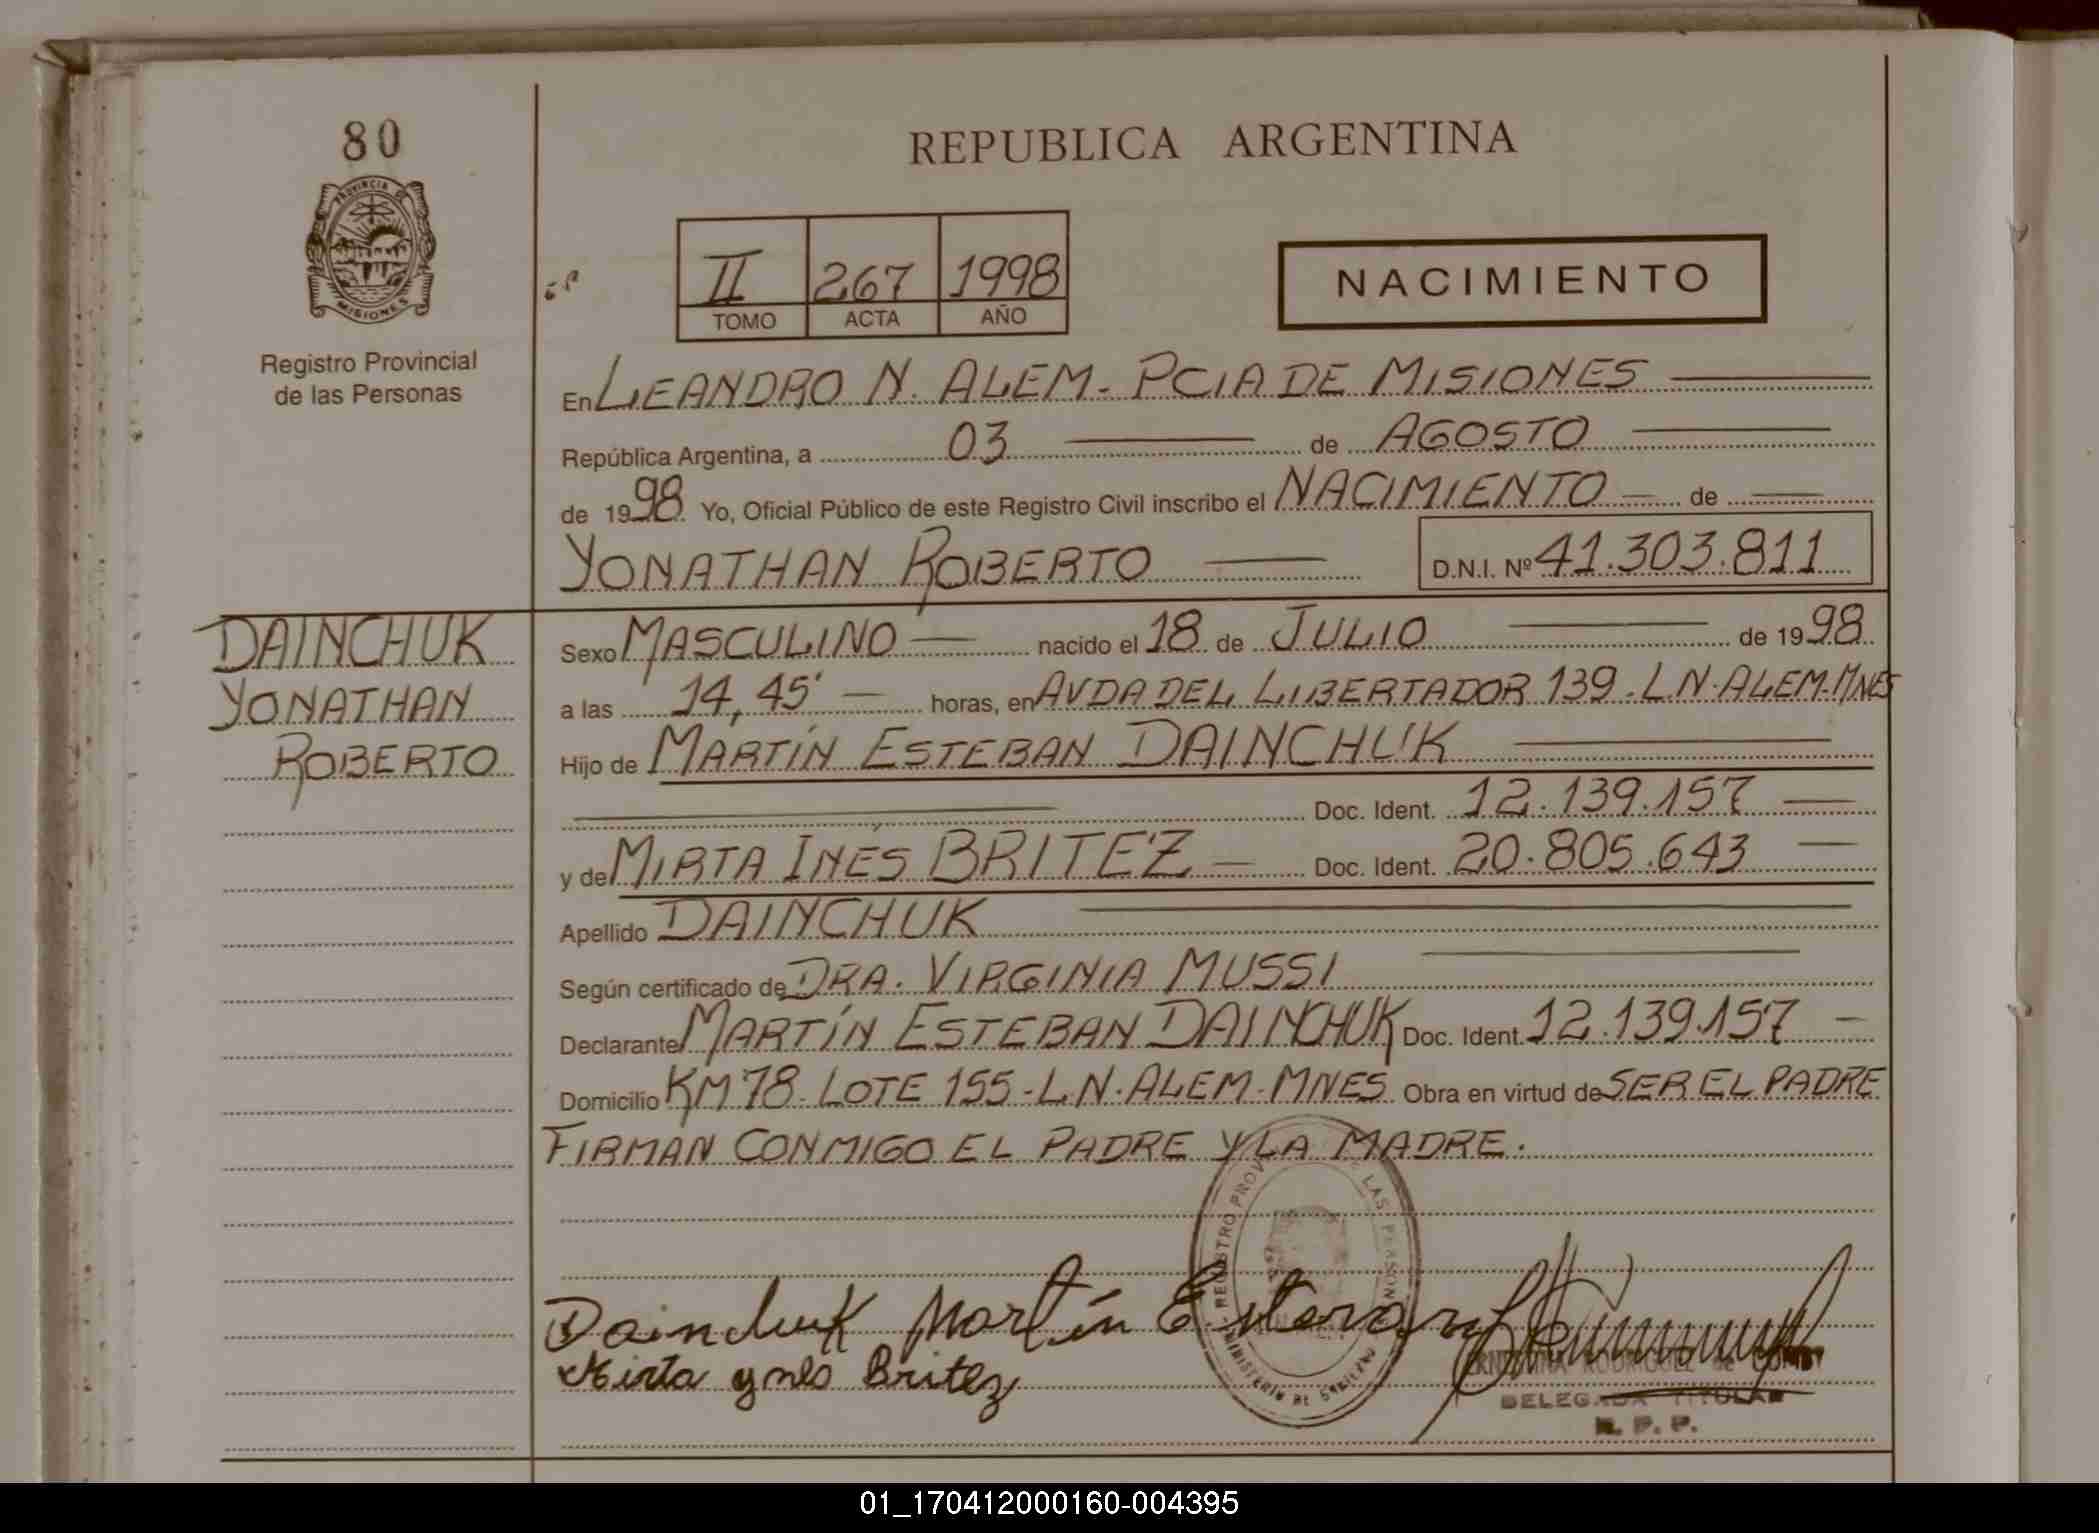 80
PROVINCIA DE
MISIONES
Registro Provincial
de las Personas
REPUBLICA ARGENTINA
II 267 1998
TOMO ACTA AÑO
NACIMIENTO
En LEANDRO N. ALEM - PCIA DE MISIONES
República Argentina, a 03 de AGOSTO
de 1998. Yo, Oficial Público de este Registro Civil inscribo el NACIMIENTO de
YONATHAN ROBERTO D.N.I. Nº 41.303.811
DAINCHUK
YONATHAN
ROBERTO
Sexo MASCULINO nacido el 18 de JULIO de 1998
a las 14,45' horas, en AVDA DEL LIBERTADOR 139. L.N. ALEM. MNES
Hijo de MARTÍN ESTEBAN DAINCHUK
Doc. Ident. 12.139.157
y de MIRTA INÉS BRITEZ Doc. Ident. 20.805.643
Apellido DAINCHUK
Según certificado de DRA. VIRGINIA MUSSI
Declarante MARTÍN ESTEBAN DAINCHUK Doc. Ident. 12.139.157
Domicilio KM 78. LOTE 155 - L.N. ALEM - MNES Obra en virtud de SER EL PADRE
FIRMAN CONMIGO EL PADRE Y LA MADRE.
REGISTRO PROV LAS PERSONAS
MINISTERIO DE GOBIERNO
Dainchuk Martín Esteban
Mirta ynes Britez
RODRIGUEZ de
DELEGADA TITULAR
R. P. P.
01_170412000160-004395